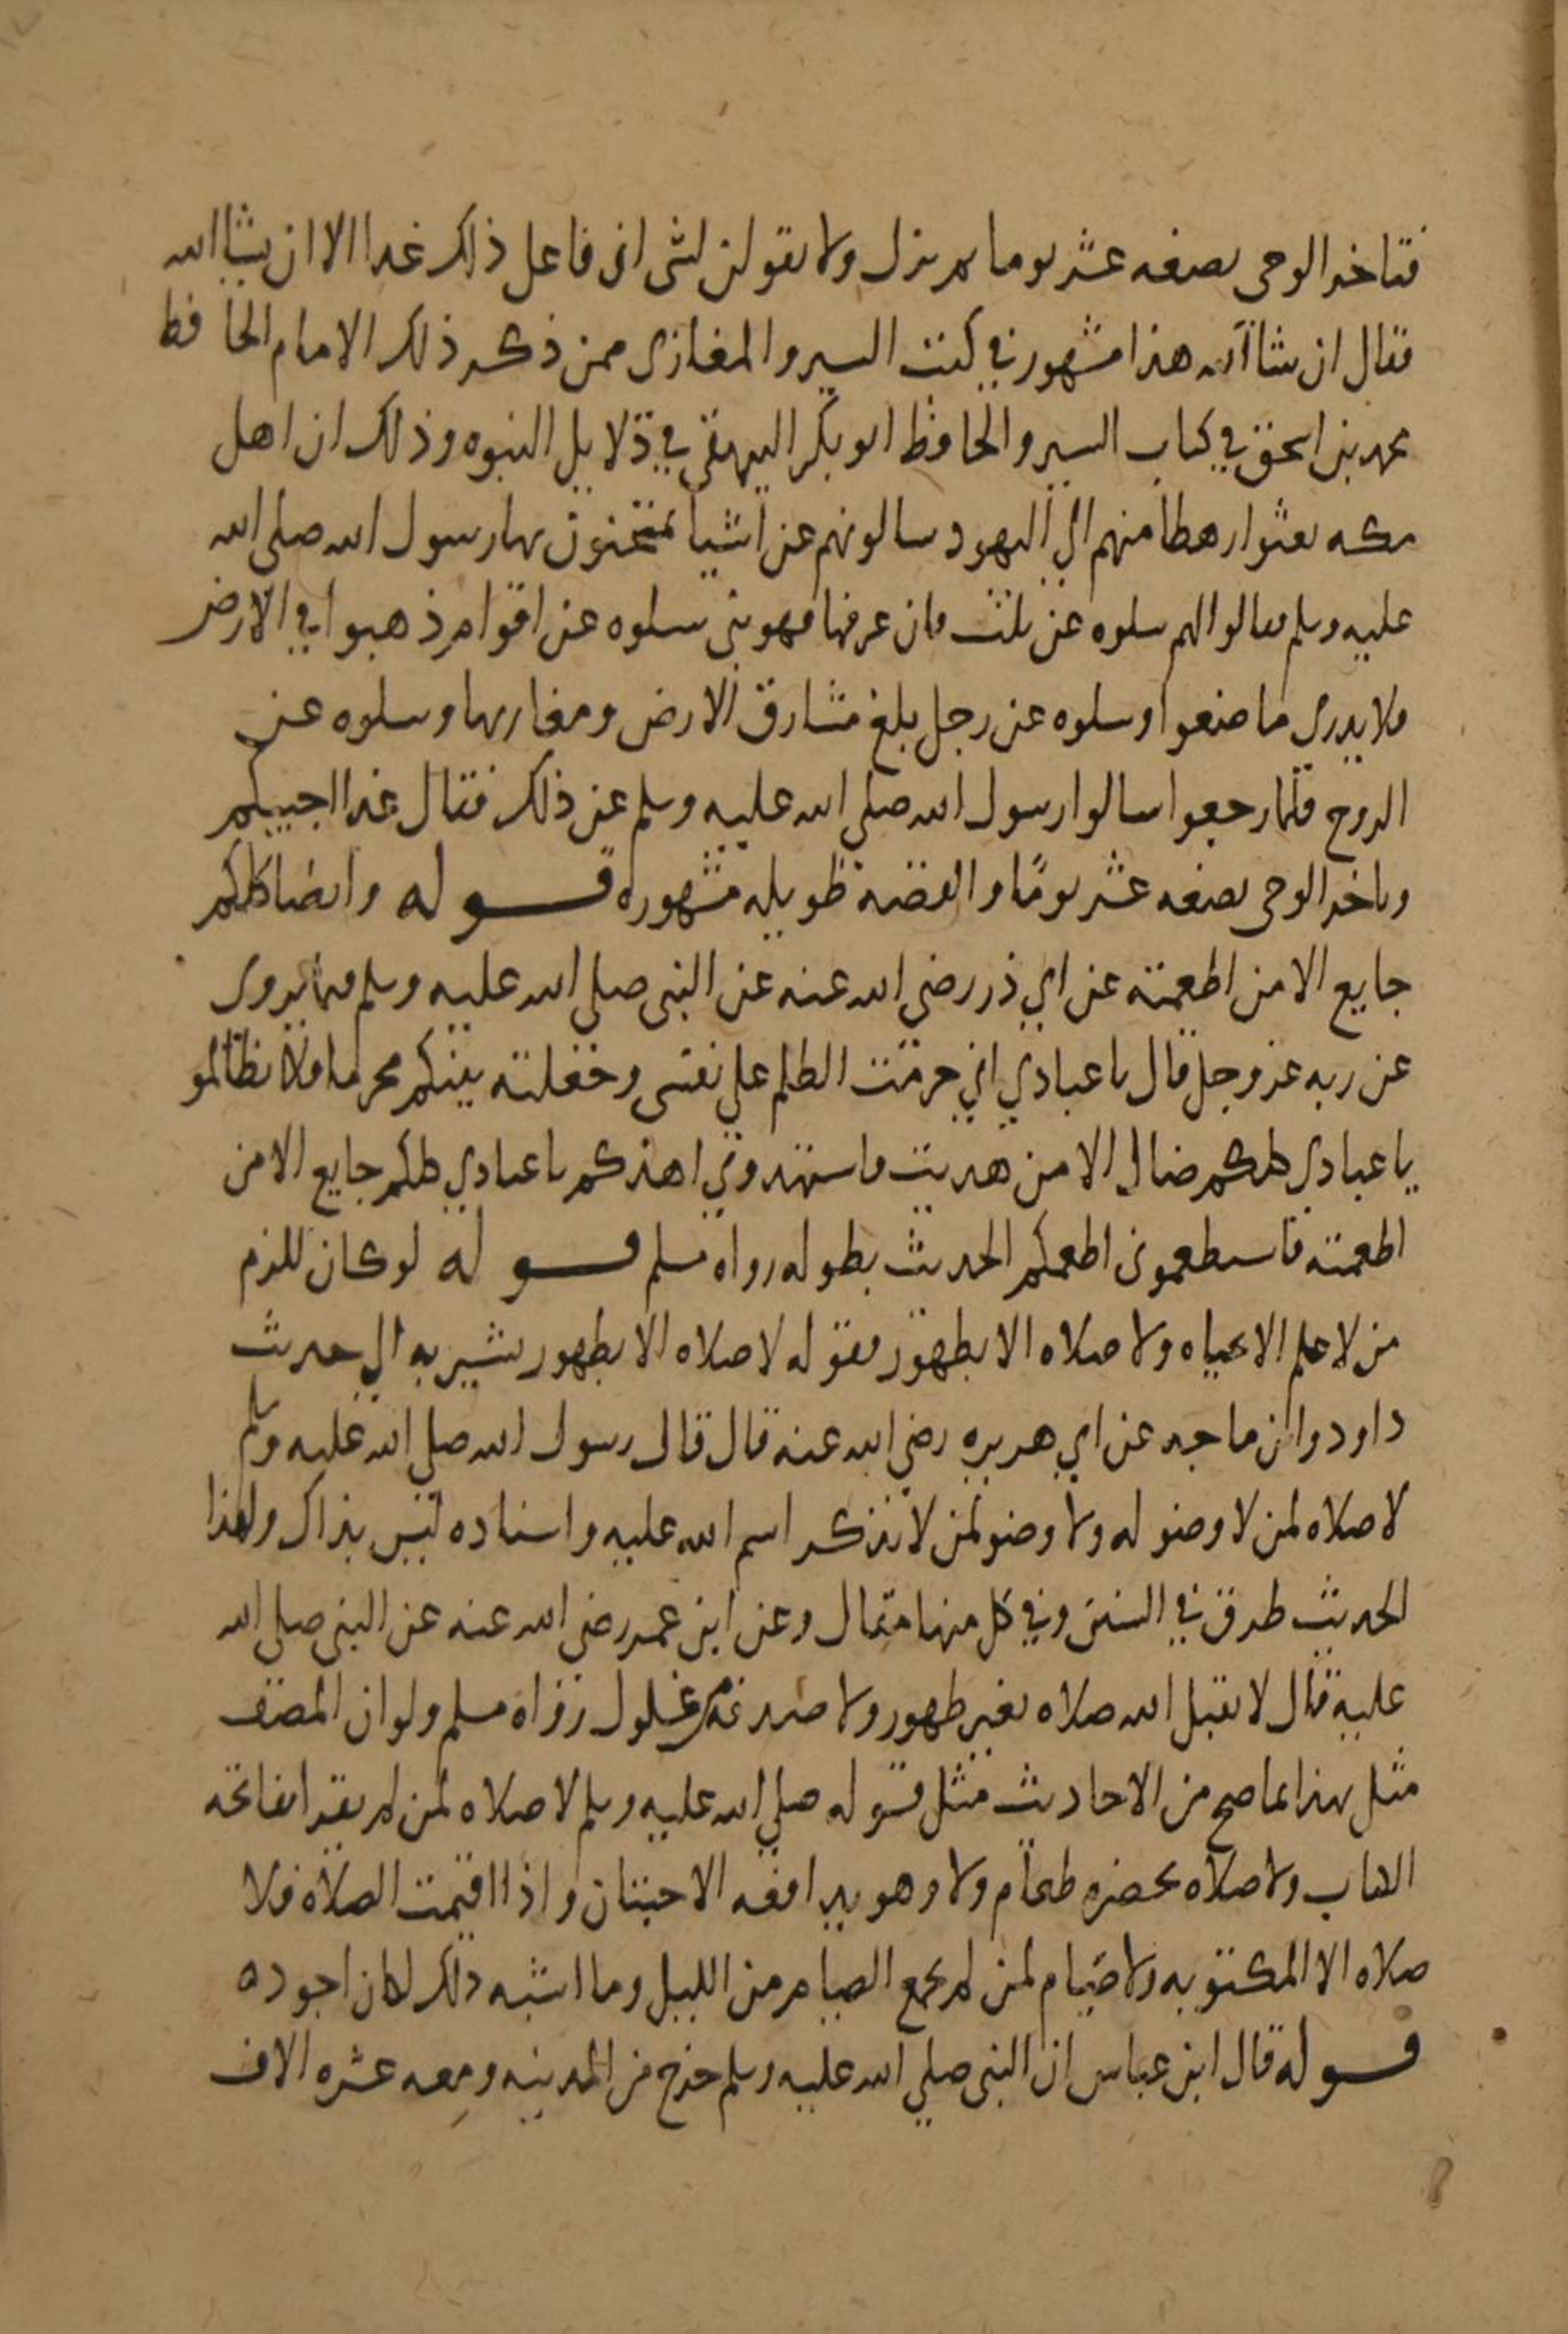 فتاخر الوحى بضعه عشر يوما ثم نزل ولا تقولن لشى انى فاعل ذلك غدا الا ان يشا الله
فقال ان شا الله هذا مشهور في كتب السير والمغازى ممن ذكر ذلك الامام الحافظ
محمد بن اسحق في كتاب السير والحافظ ابو بكر البيهقى في دلايل النبوه وذلك ان اهل
مكه بعثوا رهطا منهم الي اليهود سالونهم عن اشيا يمتحنون بها رسول الله صلى الله
عليه وسلم فقالوا لهم سلوه عن ثلث فان عرفها فهو نبى سلوه عن اقوام ذهبوا في الارض
فلا يدرى ما صنعوا وسلوه عن رجل بلغ مشارق الارض ومغاربها وسلوه عن
الروح فلما رجعوا سالوا رسول الله صلي الله عليه وسلم عن ذلك فقال غدا اجيبكم
وتاخر الوحى بضعه عشر يوما والقصه طويله مشهوره قوله وايضا كلكم
جايع الا من اطعمته عن ابي ذر رضي الله عنه عن النبى صلي الله عليه وسلم فيما يروى
عن ربه عز وجل قال يا عبادي اني حرمت الظلم علي نفسى وجعلته بينكم محرما فلا تظالمو
يا عبادي كلكم ضال الا من هديت فاستهدوني اهدكم يا عبادي كلكم جايع الا من
اطعمته فاستطعمونى اطعمكم الحديث بطوله رواه مسلم قوله لو كان للزم
من لا علم الا بحياه ولا صلاه الا بطهور فقوله لا صلاه الا بطهور يشير به الي حديث
داود وابن ماجه عن ابي هريره رضي الله عنه قال قال رسول الله صلي الله عليه وسلم
لا صلاه لمن لا وضو له ولا وضو لمن لا يذكر اسم الله عليه واسناده ليس بذاك ولهذا
الحديث طرق في السنن وفي كل منها مقال وعن ابن عمر رضى الله عنه عن النبى صلى الله
عليه قال لا يقبل الله صلاه بغير طهور ولا صدقه من غلول رواه مسلم ولو ان المصنف
مثل بهذا بما صح من الاحاديث مثل قوله صلي الله عليه وسلم لا صلاه لمن لم يقرا بفاتحه
الكتاب ولا صلاه بحضره طعام ولا وهو يدافعه الاخبثان واذا اقيمت الصلاه فلا
صلاه الا المكتوبه ولا صيام لمن لم يجمع الصيام من الليل وما اشبه ذلك لكان اجوده
قوله قال ابن عباس ان النبى صلي الله عليه وسلم خرج من المدينه ومعه عشره الاف